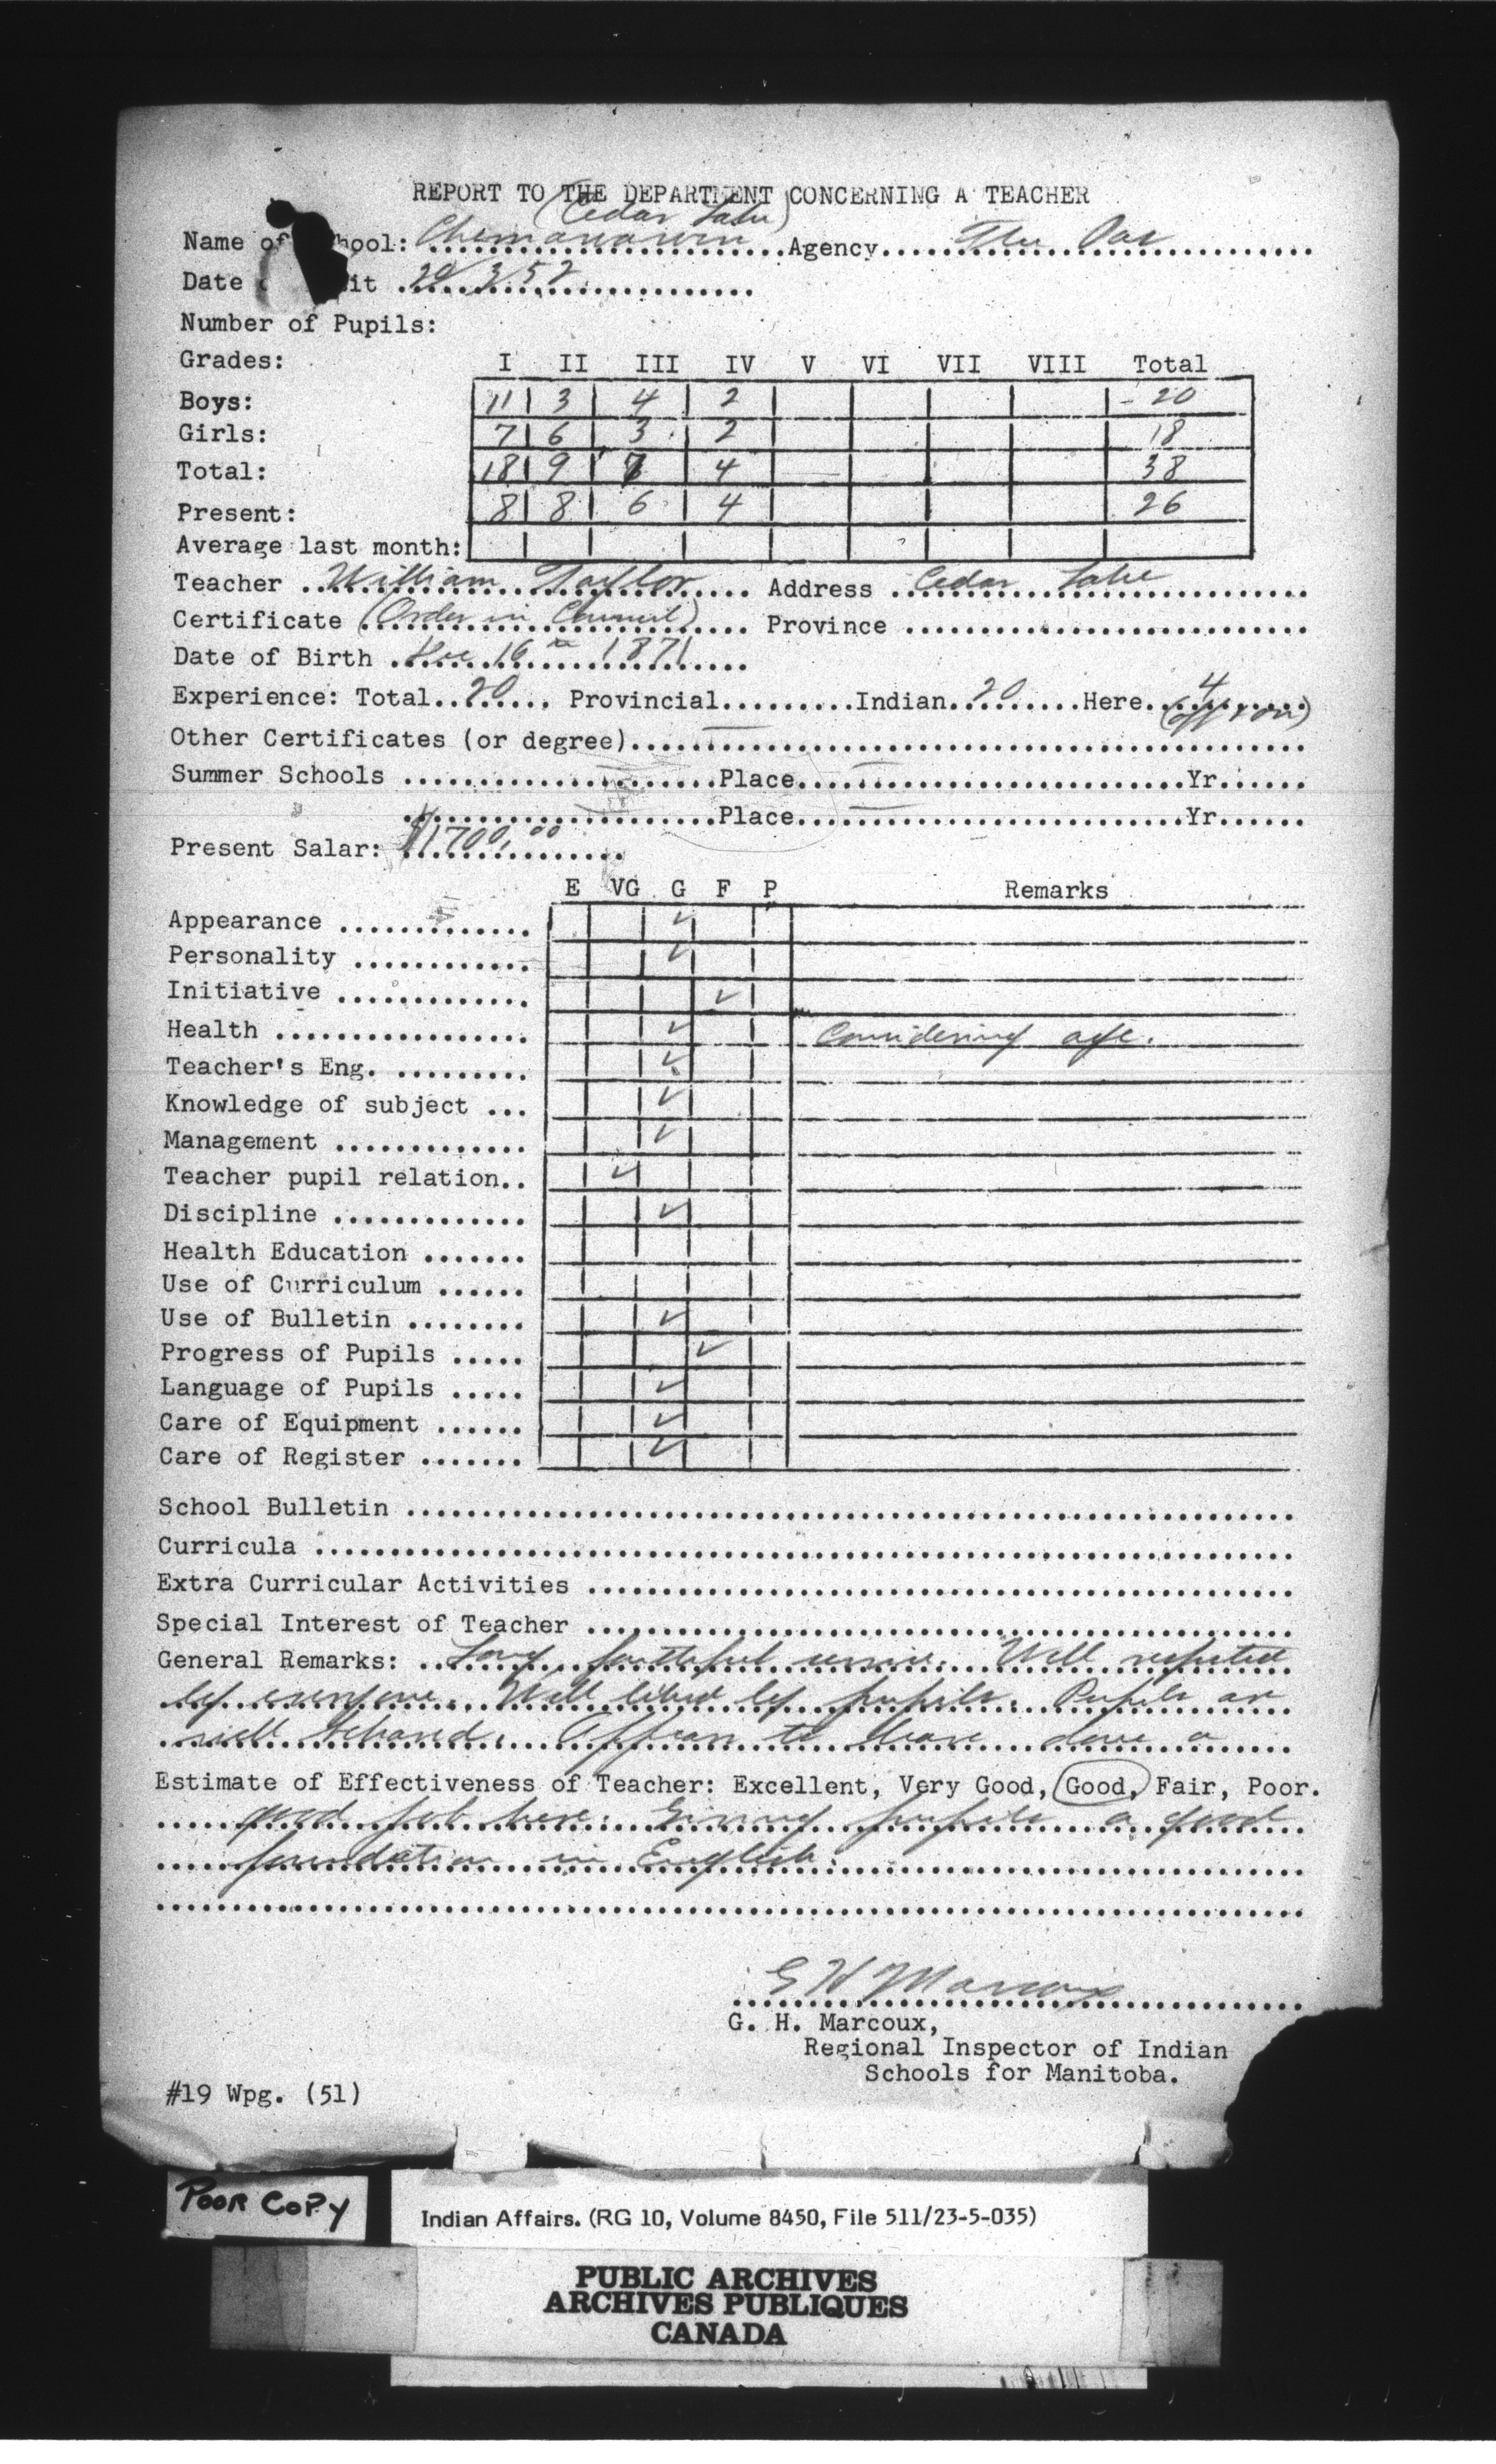 REPORT TO THE DEPARTMENT CONCERNING A TEACHER
(Cedar Lake)
Name of hool: Chemawawin Agency The Pas
Date it 20/3/52
Number of Pupils:
Grades: I II III IV V VI VII VIII Total
Boys: 11 3 4 2 20
Girls: 7 6 3 2 18
Total: 18 9 7 4 38
Present: 8 8 6 4 26
Average last month:
Teacher William Taylor Address Cedar Lake
Certificate (Order in Council) Province
Date of Birth Dec 16th 1871
Experience: Total 20 Provincial Indian 20 Here 4
(approx)
Other Certificates (or degree)
Summer Schools Place Yr
Place Yr
Present Salar: $1700.00
E VG G F P Remarks
Appearance ✓
Personality ✓
Initiative ✓
Health ✓ Considering age.
Teacher's Eng. ✓
Knowledge of subject ✓
Management ✓
Teacher pupil relation ✓
Discipline ✓
Health Education
Use of Curriculum
Use of Bulletin ✓
Progress of Pupils ✓
Language of Pupils ✓
Care of Equipment ✓
Care of Register ✓
School Bulletin
Curricula
Extra Curricular Activities
Special Interest of Teacher
General Remarks: Long faithful service. Well respected
by everyone. Well liked by pupils. Pupils are
well behaved. Appears to have done a
Estimate of Effectiveness of Teacher: Excellent, Very Good, Good, Fair, Poor.
good job here. Giving pupils a good
foundation in English.
G H Marcoux
G. H. Marcoux,
Regional Inspector of Indian
Schools for Manitoba.
#19 Wpg. (51)
POOR COPY
Indian Affairs. (RG 10, Volume 8450, File 511/23-5-035)
PUBLIC ARCHIVES
ARCHIVES PUBLIQUES
CANADA